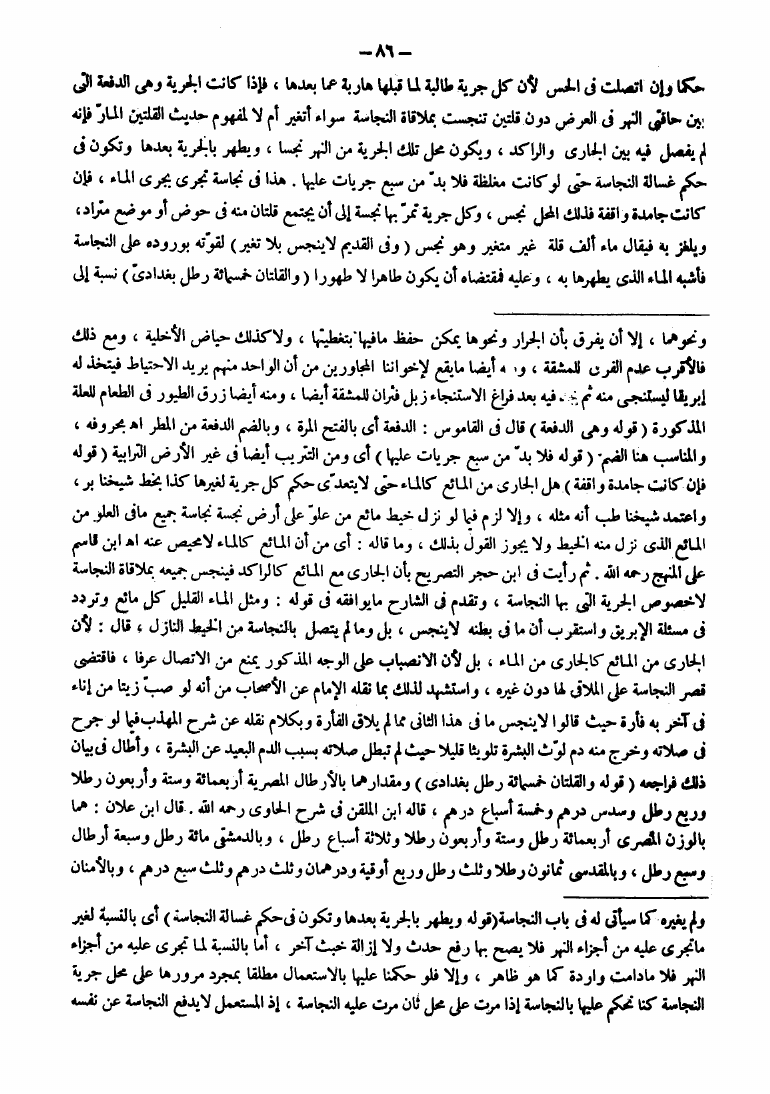 — ٨٦ —
حكما وإن اتصلت فى الحس لأن كل جرية طالبة لما قبلها هاربة عما بعدها ، فإذا كانت الجرية وهى الدفعة التى
بين حافتى النهر فى العرض دون قلتين تنجست بملاقاة النجاسة سواء أتغير أم لا لمفهوم حديث القلتين المارّ فإنه
لم يفصل فيه بين الجارى والراكد ، ويكون محل تلك الجرية من النهر نجسا ، ويطهر بالجرية بعدها وتكون فى
حكم غسالة النجاسة حتى لو كانت مغلظة فلا بدّ من سبع جريات عليها . هذا فى نجاسة تجرى بجرى الماء ، فإن
كانت جامدة واقفة فذلك المحل نجس ، وكل جرية تمرّ بها نجسة إلى أن يجتمع قلتان منه فى حوض أو موضع متراد،
ويلغز به فيقال ماء ألف قلة غير متغير وهو نجس ( وفى القديم لاينجس بلا تغير ) لقوّته بوروده على النجاسة
فأشبه الماء الذى يطهرها به ، وعليه فمقتضاه أن يكون طاهرا لا طهورا ( والقلتان خمسمائة رطل بغدادىّ ) نسبة إلى
ونحوهما ، إلا أن يفرق بأن الجرار ونحوها يمكن حفظ مافيها بتغطيتها ، ولا كذلك حياض الأخلية ، ومع ذلك
فالأقرب عدم الفرق للمشقة ، أيضا مايقع لإخواننا المجاورين من أن الواحد منهم يريد الاحتياط فيتخذ له
إبريقا ليستنجى منه ثم فيه بعد فراغ الاستنجاء زبل فئران للمشقة أيضا ، ومنه أيضا زرق الطيور فى الطعام للعلة
المذكورة ( قوله وهى الدفعة ) قال فى القاموس : الدفعة أى بالفتح المرة ، وبالضم الدفعة من المطر اه بحروفه ،
والمناسب هنا الضم ( قوله فلا بدّ من سبع جريات عليها ) أى ومن التتريب أيضا فى غير الأرض الترابية ( قوله
فإن كانت جامدة واقفة ) هل الجارى من المائع كالماء حتى لايتعدّى حكم كل جرية لغيرها كذا بخط شيخنا بر ،
واعتمد شيخنا طب أنه مثله ، وإلا لزم فيما لو نزل خيط مائع من علوّ على أرض نجسة نجاسة جميع مافى العلو من
المائع الذى نزل منه الخيط ولا يجوز القول بذلك ، وما قاله : أى من أن المائع كالماء لامحيص عنه اه ابن قاسم
على المنهج رحمه الله . ثم رأيت فى ابن حجر التصريح بأن الجارى مع المائع كالراكد فينجس جميعه بملاقاة النجاسة
لاخصوص الجرية التى بها النجاسة ، وتقدم فى الشارح مايوافقه فى قوله : ومثل الماء القليل كل مائع وتردد
فى مسئلة الإبريق واستقرب أن ما فى بطنه لاينجس ، بل ومالم يتصل بالنجاسة من الخيط النازل ، قال : لأن
الجارى من المائع كالجارى من الماء ، بل لأن الانصباب على الوجه المذكور يمنع من الاتصال عرفا ، فاقتضى
قصر النجاسة على الملاقى لها دون غيره ، واستشهد لذلك بما نقله الإمام عن الأصحاب من أنه لو صبّ زيتا من إناء
فى آخر به فأرة حيث قالوا لاينجس ما فى هذا الثانى مما لم يلاق الفأرة وبكلام نقله عن شرح المهذب فيما لو جرح
فى صلاته وخرج منه دم لوّث البشرة تلويثا قليلا حيث لم تبطل صلاته بسبب الدم البعيد عن البشرة ، وأطال فى بيان
ذلك فراجعه ( قوله والقلتان خمسمائة رطل بغدادى ) ومقدارهما بالأرطال المصرية أربعمائة وستة وأربعون رطلا
وربع رطل وسدس درهم وخمسة أسباع درهم ، قاله ابن الملقن فى شرح الحاوى رحمه الله . قال ابن علان : هما
بالوزن المصرى أربعمائة رطل وستة وأربعون رطلا وثلاثة أسباع رطل ، وبالدمشقى مائة رطل وسبعة أرطال
وسبع رطل ، وبالمقدسى ثمانون رطلا وثلث رطل وربع أوقية ودرهمان وثلث درهم وثلث سبع درهم ، وبالأمنان
ولم يغيره كما سيأتى له فى باب النجاسة(قوله ويطهر بالجرية بعدها وتكون فى حكم غسالة النجاسة ) أى بالنسبة لغير
ماتجرى عليه من أجزاء النهر فلا يصح بها رفع حدث ولا إزالة خبث آخر ، أما بالنسبة لما تجرى عليه من أجزاء
النهر فلا مادامت واردة كما هو ظاهر ، وإلا فلو حكمنا عليها بالاستعمال مطلقا بمجرد مرورها على محل جرية
النجاسة كنا نحكم عليها بالنجاسة إذا مرت على محل ثان مرت عليه النجاسة ، إذ المستعمل لايدفع النجاسة عن نفسه